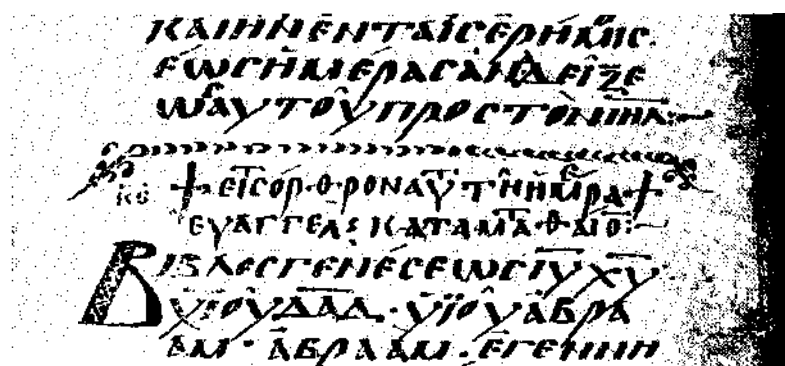 ΚΑΙ ΗΝ ΕΝ ΤΑΙϹ ΕΡΗΜΟΙϹ·
ΕΩϹ ΗΜΕΡΑϹ ΑΝΑΔΕΙΞΕ
ΩϹ ΑΥΤΟΥ ΠΡΟϹ ΤΟΝ ΙΗΛ:
+ ΕΙϹ ΟΡ·Θ·ΡΟΝ ΑΥΤΗ ΗΜΕΡΑ +
ΕΥΑΓΓΕΛϛ ΚΑΤΑ ΜΑΤ·Θ·ΑΙΟ:
ΒΙΒΛΟϹ ΓΕΝΕϹΕΩϹ ΙΥ ΧΥ
ΥΙΟΥ ΔΑΔ · ΥΙΟΥ ΑΒΡΑ
ΑΜ · ΑΒΡΑΑΜ · ΕΓΕΝΝΗ